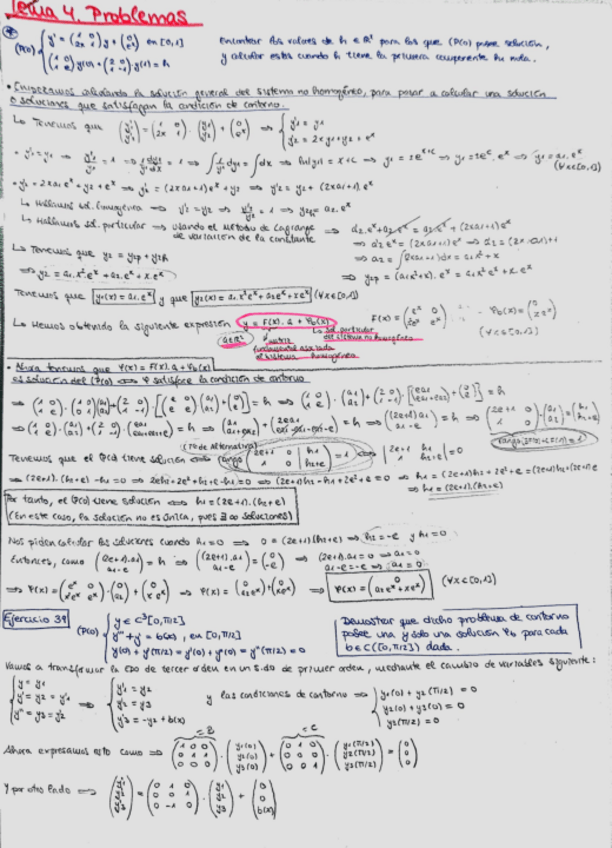 Tema 4. Problemas
(PC0) { y' = (1 0; 2x 1) y + (0; e^x) en [0,1]
(1 0; 1 e) y(0) + (2 0; 1 -1) · y(1) = h
Encontrar los valores de h ∈ R² para los que (PC0) posee solución,
y calcular estas cuando h tiene la primera componente h₁ nula.
• Empezamos calculando la solución general del sistema no homogéneo, para pasar a calcular una solución
o soluciones que satisfagan la condición de contorno.
↳ Tenemos que (y₁'; y₂') = (1 0; 2x 1) · (y₁; y₂) + (0; e^x) ⟹ { y₁' = y₁
y₂' = 2x y₁ + y₂ + e^x
• y₁' = y₁ ⟹ y₁'/y₁ = 1 ⟹ 1/y₁ dy₁/dx = 1 ⟹ ∫ 1/y₁ dy₁ = ∫ dx ⟹ ln|y₁| = x + c ⟹ y₁ = ± e^(x+c) ⟹ y₁ = ± e^c · e^x ⟹ y₁ = a₁ · e^x
(∀x∈[0,1])
• y₂' = 2x a₁ e^x + y₂ + e^x ⟹ y₂' = (2x a₁ + 1) e^x + y₂ ⟹ y₂' = y₂ + (2x a₁ + 1) e^x
↳ Hallamos sol. homogénea ⟹ y₂' = y₂ ⟹ y₂'/y₂ = 1 ⟹ y₂h = a₂ e^x
↳ Hallamos sol. particular ⟹ Usando el método de Lagrange de variación de la constante ⟹ a₂' e^x + a₂ e^x = a₂ e^x + (2x a₁ + 1) e^x
⟹ a₂' e^x = (2x a₁ + 1) e^x ⟹ a₂' = (2x · a₁) + 1
⟹ a₂ = ∫ (2x a₁ + 1) dx = a₁ x² + x
↳ Tenemos que y₂ = y₂p + y₂h
⟹ y₂p = (a₁ x² + x) · e^x = a₁ x² e^x + x · e^x
⟹ y₂ = a₁ x² e^x + a₂ e^x + x · e^x
Tenemos que y₁(x) = a₁ · e^x y que y₂(x) = a₁ x² e^x + a₂ e^x + x e^x (∀x∈[0,1])
↳ Hemos obtenido la siguiente expresión y = F(x) · a + φb(x)
F(x) = (e^x 0; x²e^x e^x) φb(x) = (0; x e^x)
(∀x∈[0,1])
a∈R²
matriz fundamental asociada al sistema homogéneo
sol. particular del sistema no homogéneo
• Ahora tenemos que φ(x) = F(x) · a + φb(x)
es solución del (PC0) ⟺ φ satisface la condición de contorno
⟹ (1 0; 1 e) · (1 0; 0 1)(a₁; a₂) + (2 0; 1 -1) · [(e 0; e e)(a₁; a₂) + (0; e)] = h ⟹ (1 0; 1 e) · (a₁; a₂) + (2 0; 1 -1) · [(ea₁; ea₁+ea₂) + (0; e)] = h
⟹ (1 0; 1 e) · (a₁; a₂) + (2 0; 1 -1) · (ea₁; ea₁+ea₂+e) = h ⟹ (a₁; a₁+ea₂) + (2ea₁; ea₁-ea₁-ea₂-e) = h ⟹ ((2e+1)a₁; a₁-e) = h ⟹ (2e+1 0; 1 0) · (a₁; a₂) = (h₁; h₂+e)
(Tª de alternativa)
Tenemos que el (PC0) tiene solución ⟺ rango (2e+1 0 | h₁; 1 0 | h₂+e) = 1 ⟺ |2e+1 h₁; 1 h₂+e| = 0
⟹ (2e+1) · (h₂+e) - h₁ = 0 ⟹ 2eh₂+2e²+h₂+e-h₁ = 0 ⟹ (2e+1)h₂-h₁+2e²+e = 0 ⟹ h₁ = (2e+1)h₂+2e²+e = (2e+1)h₂+(2e+1)e
⟹ h₁ = (2e+1) · (h₂+e)
Por tanto, el (PC0) tiene solución ⟺ h₁ = (2e+1) · (h₂+e)
(En este caso, la solución no es única, pues ∃ ∞ soluciones)
Nos piden calcular las soluciones cuando h₁ = 0 ⟹ 0 = (2e+1)(h₂+e) ⟹ h₂ = -e y h₁ = 0
Entonces, como ((2e+1)·a₁; a₁-e) = h ⟹ ((2e+1)·a₁; a₁-e) = (0; -e) ⟹ (2e+1)·a₁ = 0 ⟹ a₁ = 0
a₁-e = -e ⟹ a₁ = 0
⟹ φ(x) = (e^x 0; x²e^x e^x) · (0; a₂) + (0; x e^x) ⟹ φ(x) = (0; a₂e^x) + (0; xe^x) ⟹ φ(x) = (0; a₂e^x + xe^x) (∀x∈[0,1])
Ejercicio 39
(PC0) { y ∈ C³[0,π/2]
y''' + y' = b(x), en [0,π/2]
y(0) + y'(π/2) = y'(0) + y''(0) = y''(π/2) = 0
Demostrar que dicho problema de contorno
posee una y sólo una solución φb para cada
b ∈ C([0,π/2]) dada.
Vamos a transformar la EDO de tercer orden en un S.do de primer orden, mediante el cambio de variables siguiente:
{ y = y₁
y' = y₂ = y₁'
y'' = y₃ = y₂'
⟹ { y₁' = y₂
y₂' = y₃
y₃' = -y₂ + b(x)
y las condiciones de contorno ⟹ { y₁(0) + y₂(π/2) = 0
y₂(0) + y₃(0) = 0
y₃(π/2) = 0
Ahora expresamos esto como ⟹ (1 0 0; 0 1 1; 0 0 0) · (y₁(0); y₂(0); y₃(0)) + (0 1 0; 0 0 0; 0 0 1) · (y₁(π/2); y₂(π/2); y₃(π/2)) = (0; 0; 0)
= B
= C
Y por otro lado ⟹ (y₁'; y₂'; y₃') = (0 1 0; 0 0 1; 0 -1 0) · (y₁; y₂; y₃) + (0; 0; b(x))